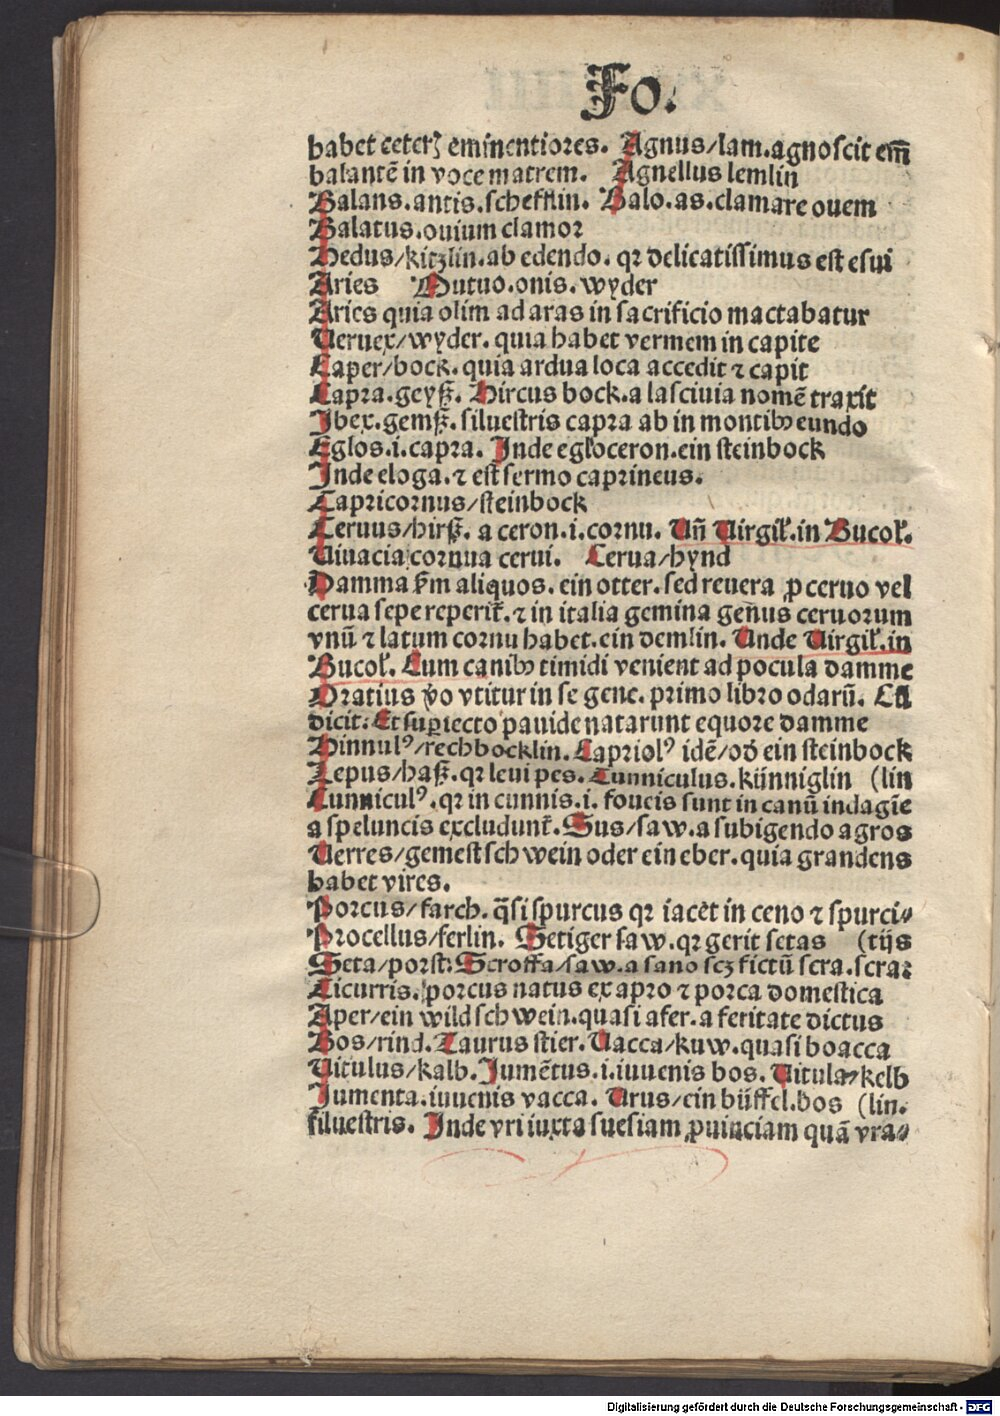 Fo.
habet ceterꝫ eminentiores. Agnus/lam.agnoscit em̄
balantē in voce matrem. Agnellus lemlin
Balans.antis.schefflin. Balo.as.clamare ouem
Balatus.ouium clamor
Hedus/kitzlin.ab edendo. qꝛ delicatissimus est esui
Aries Mutuo.onis.wyder
Aries quia olim ad aras in sacrificio mactabatur
Ueruex/wyder.quia habet vermem in capite
Caper/bock.quia ardua loca accedit ⁊ capit
Capra.geyß. Hircus bock.a lasciuia nomē traxit
Ibex.gemß.siluestris capra ab in montibꝰ eundo
Eglos.i.capra. Inde egloceron.ein steinbock
Inde eloga.⁊ est sermo caprineus.
Capricornus/steinbock
Ceruus/hirß. a ceron.i.cornu. Uñ Uirgil̛.in Bucol̛.
Uiuacia cornua cerui. Cerua/hynd
Damma ẜm aliquos.ein otter.sed reuera ꝓ ceruo vel
cerua sepe reperit̛.⁊ in italia gemina geñus ceruorum
vnū ⁊ latum cornu habet.ein demlin. Unde Uirgil̛.in
Bucol̛. Cum canibꝰ timidi venient ad pocula damme
Oratius v̊o vtitur in se gene.primo libro odarū. Cū
dicit: Et suꝑiecto pauide natarunt equore damme
Hinnulꝰ/rechbocklin.Capriolꝰ idē/od̛ ein steinbock
Lepus/haß.qꝛ leui pes.Cunniculus.künniglin (lin
Cunniculꝰ.qꝛ in cunnis.i. foueis sunt in canū indagīe
a speluncis excludunt̛.Sus/saw.a subigendo agros
Uerres/gemest schwein oder ein eber.quia grandens
habet vires.
Porcus/farch. q̄si spurcus qꝛ iacet in ceno ⁊ spurci⸗
Procellus/ferlin. Setiger saw.qꝛ gerit setas (tijs
Seta/porst:Scroffa/saw.a sano sꝫ fictū scra.scrar
Cicurris.porcus natus ex apro ⁊ porca domestica
Aper/ein wild schwein.quasi afer.a feritate dictus
Bos/rind.Taurus stier.Uacca/kuw.quasi boacca
Uitulus/kalb.Jumētus.i.iuuenis bos.Uitula/kelb
Jumenta.iuuenis vacca. Urus/ein büffel.bos (lin.
siluestris. Inde vri iuxta suesiam ꝓuinciam quā vra⸗
Digitalisierung gefördert durch die Deutsche Forschungsgemeinschaft - DFG